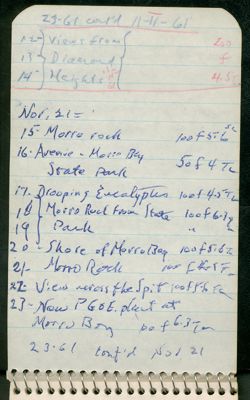 23-61 cont'd 11-11-61
12- Views from 200
13- Diamond f
14- Heights 4.5
Nov, 21=
15- Morro rock 100 f 5.6
16. Avenue - Morro Bay 50 f 4.
State Park
17. Drooping Eucalyptus 100 f
18 Morro Rock from State 100 f 6.3
19 Park "
20- Shore of Morro Bay 100 f 5.6
21- Morro Rock 100 f
22- View across the Spit 100 f 5.6
23- New P G & E. plant at
Morro Bay 100 f 6.3
23-61 cont'd Nov 21